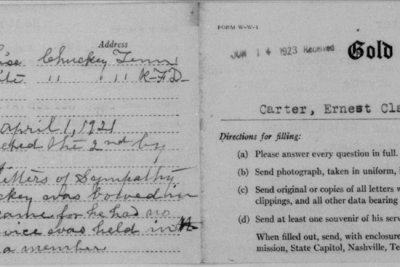 Address
Chuckey Tenn
" " R-F-D-
April 1, 1921
the 2nd by
letters of Sympathy
came for he had no
was held in
a member
FORM W-W-1
JUN 14 1923 Received
Gold
Carter, Ernest Cla
Directions for filling:
(a) Please answer every question in full.
(b) Send photograph, taken in uniform, i
(c) Send original or copies of all letters w
clippings, and all other data bearing
(d) Send at least one souvenir of his serv
When filled out, send, with enclosure
mission, State Capitol, Nashville, Te